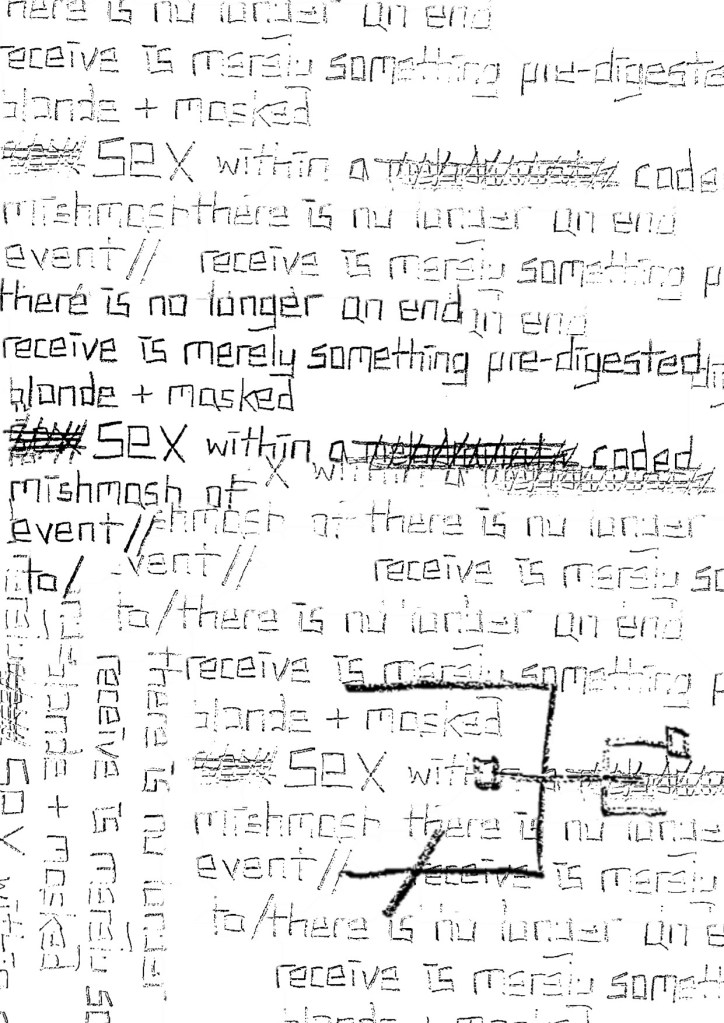 there is no longer an end
receive is merely something pre-digeste
blande + masked
SEX within a code
mishmosh there is no longer an end
event// receive is merely something p
there is no longer an end an end
receive is merely something pre-digested
blonde + masked
SEX within a coded
X within a
mishmosh of
shmosh of there is no longer
event//
vent// receive is merely so
to/
to/there is no longer an end
receive is merely something p
blande + masked
SEX within a
mishmosh there is no longe
event// receive is merely
to/there is no longer an e
receive is merely someth
blande + masked
SEX within
blande + masked
receive is merely so
there is no longer